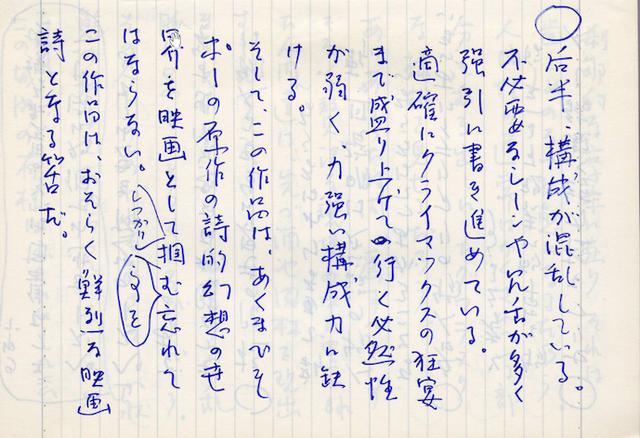 ◯ 后半、構成が混乱している。
不必要なシーンや冗舌が多く
強引に書き進めている。
適確にクライマックスの狂宴
まで盛り上げて行く必然性
が弱く、力強い構成力に缺
ける。
そして、この作品は、あくまでそ
ポーの原作の詩的幻想の世
界を映画として掴む忘れて
しっかり
事を
はならない。
この作品は、おそらく鮮烈な映画
詩となる筈だ。